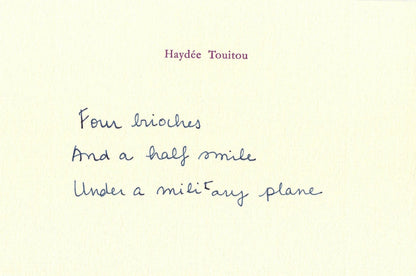 Haydée Touitou
Four brioches
And a half smile
Under a military plane